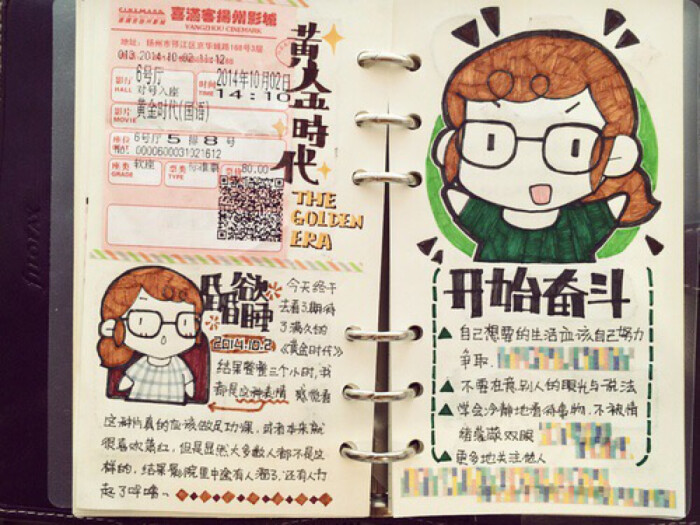 CINEMARK 喜满客扬州影城
YANGZHOU CINEMARK
地址：扬州市邗江区京华城路168号3层
013 2014-10-02 11:12
影厅 HALL 6号厅 对号入座
时间 TIME 2014年10月02日 14:10
影片 MOVIE 黄金时代(国语)
座位 6号厅 5排8号
No. 0000600031021612
座类 GRADE 软座 票类 TYPE 80.00
黄金時代
THE
GOLDEN
ERA
昏昏欲睡
2014.10.2
今天终于
去看了期待
了满久的
《黄金时代》
结果整整三个小时,我
都是这种表情
这种片真的应该做足功课,或者本来就
很喜欢萧红,但是显然大多数人都不是这
样的,结果影院里中途有人溜了,还有人打
起了呼噜~
开始奋斗
自己想要的生活应该自己努力
争取.
不要在意别人的眼光与说法
学会冷静地看待事物,不被情
绪蒙蔽双眼
更多地关注他人